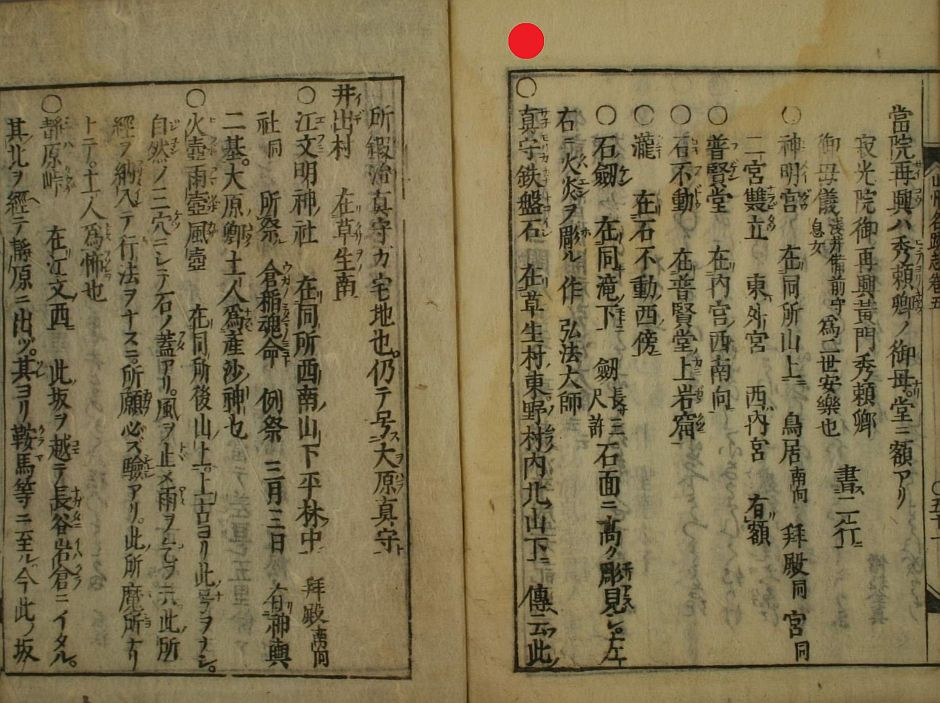 當院再興ハ秀頼卿ノ御母堂ニ額アリ
寂光院御再興黄門秀頼卿 書二行
御母儀浅井備前守息女為二世安樂也
○神明宮 在同所山上 鳥居南向 拜殿同 宮同
二宮雙立 東外宮 西内宮 有額
○普賢堂 在内宮西南向
○石不動 在普賢堂上岩窟
○瀧 在石不動西傍
○石劔 在同滝下 劔長三尺許 石面ニ高ク彫見ス。上左
右ニ火炎ヲ彫ル 作 弘法大師
○真守鉄盤石 在草生村東野村内北山下 傳云此
所鍜冶真守カ宅地也。仍テ号ス大原真守ト
井出村 在草生南
○江文明神社 在同所西南山下平林中 拜殿南向
社同 所祭 倉稲魂命 例祭 三月三日 有神輿
二基。大原郷土人為産沙神也
○火壺雨壺風壺 在同所後山上上古ヨリ此号ヲナシ。
自然ノ三穴ニシテ石ノ蓋アリ。風ヲ止メ雨ヲ乞フニ此所
經ヲ納入テ行法ヲナスニ所願必ズ驗アリ。此所魔所ナリ
トテ。土人為怖也
○静原峠 在江文西 此坂ヲ越テ長谷岩倉ニイタル。
其北ヲ經テ静原ニ出ツ。其ヨリ鞍馬等ニ至ル今此ノ坂